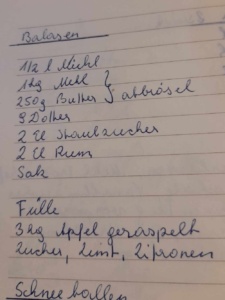 Balasen
1/2 l Milch
1 kg Mehl
250g Butter } abbrösel
9 Dotter
2 El Staubzucker
2 El Rum
Salz
Fülle
3 kg Äpfel geraspelt
Zucker, Zimt, Zitronen
Schneeballen